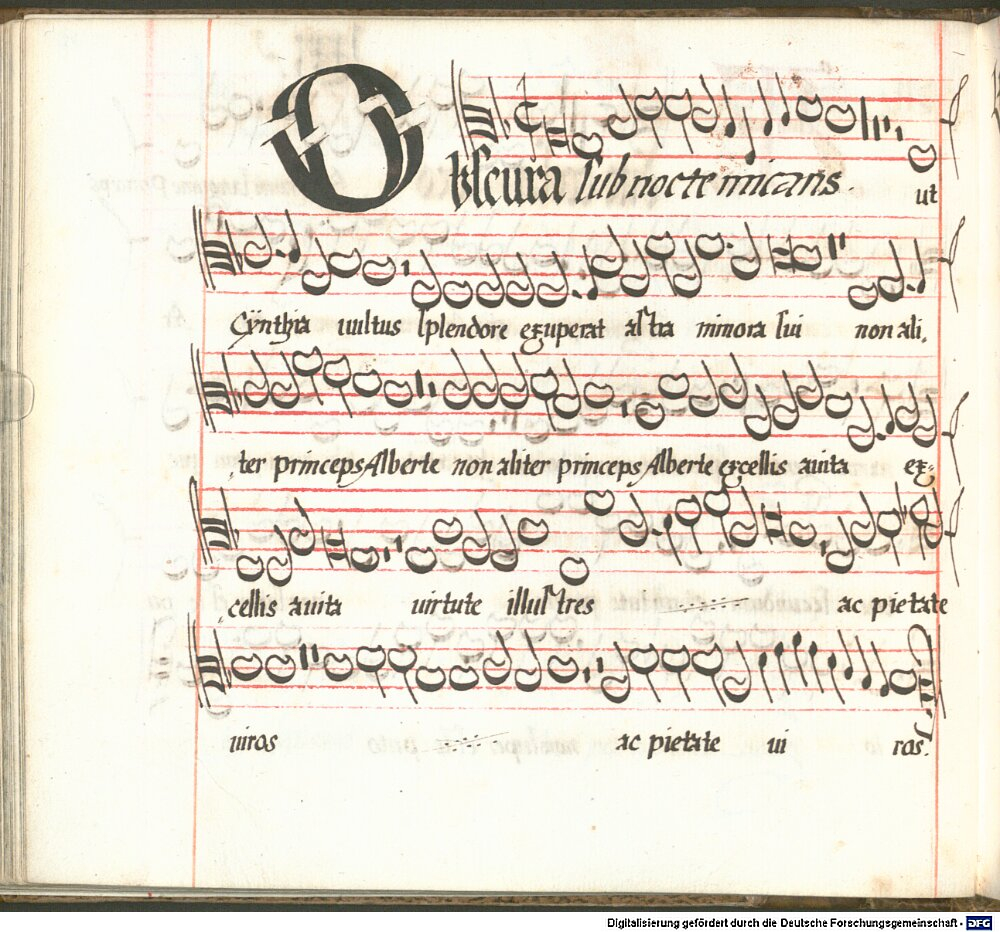 Obscura sub nocte micans ut
Cÿnthia uultus splendore exuperat astra minora sui non ali,
,ter princeps Alberte non aliter princeps Alberte excellis auita ex=
,cellis auita uirtute illustres ac pietate
uiros ac pietate ui ros.
Digitalisierung gefördert durch die Deutsche Forschungsgemeinschaft - DFG